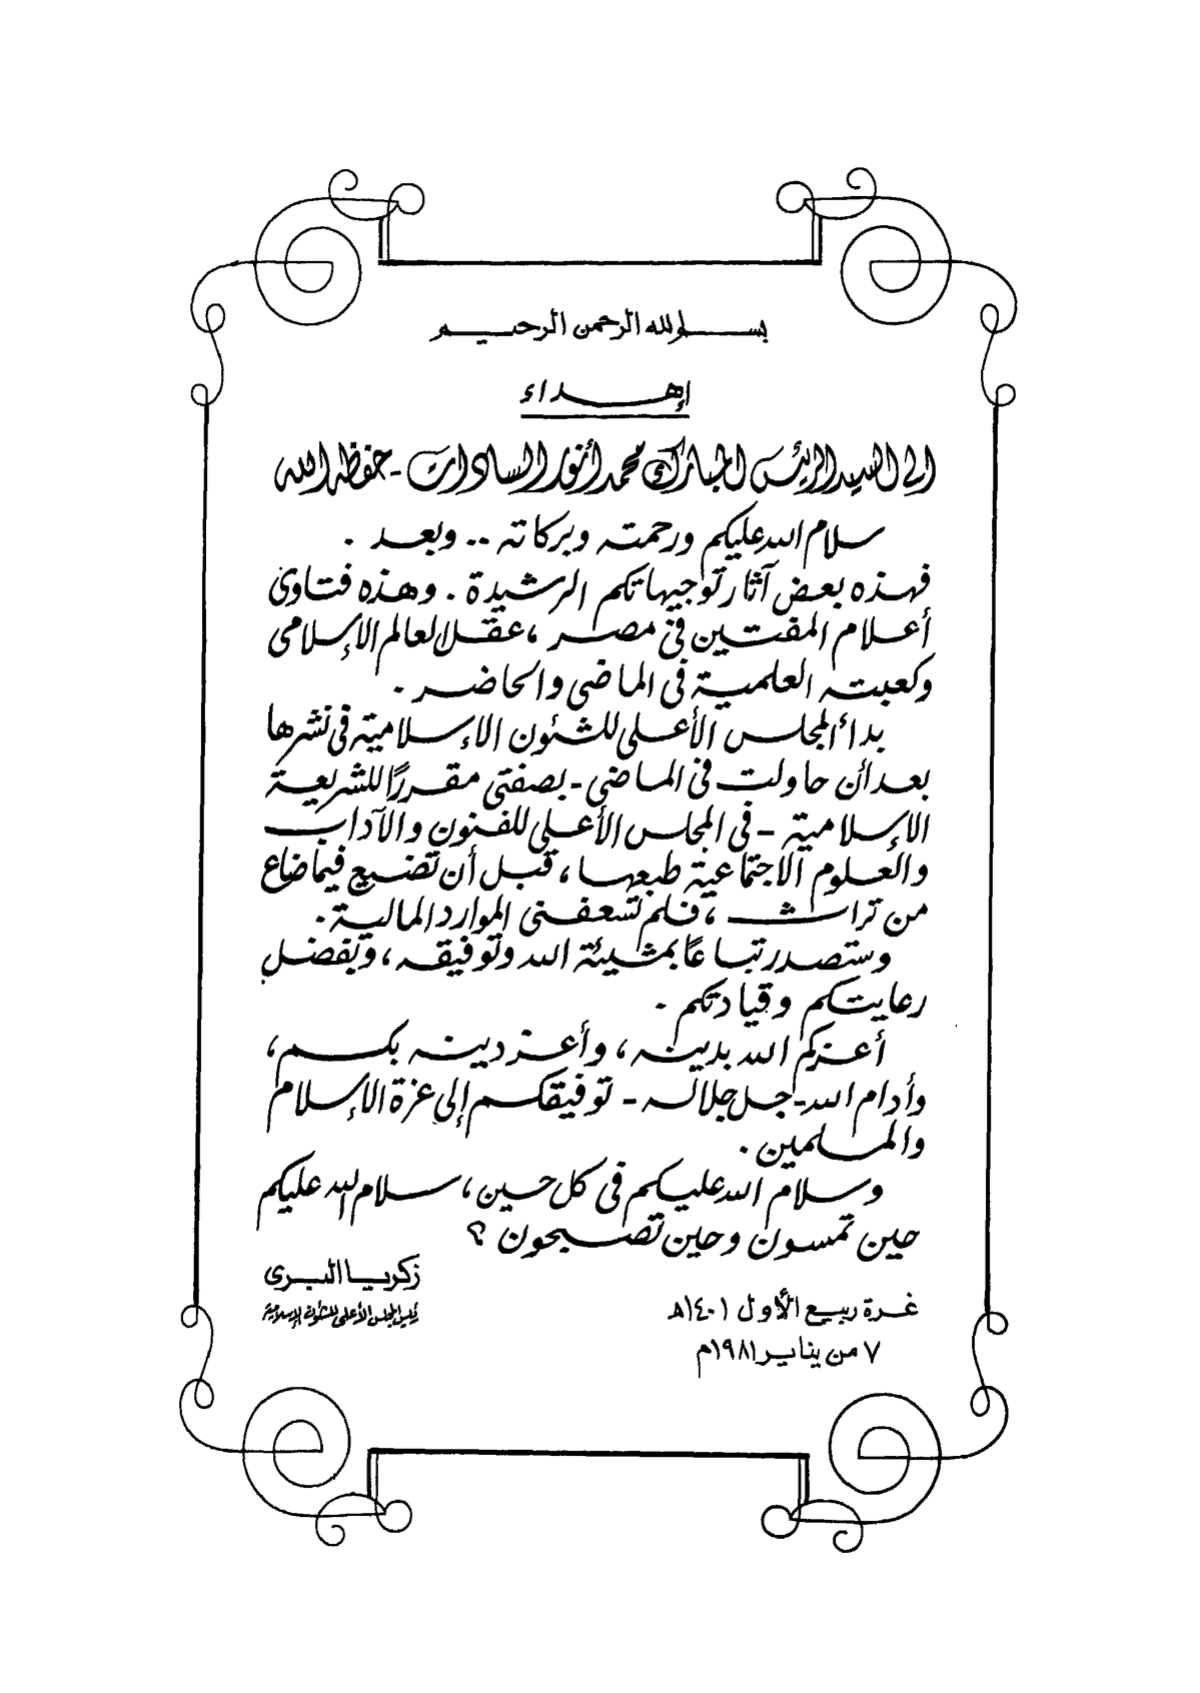 بسم الله الرحمن الرحيم
إهداء
إلى السيد الرئيس المبارك محمد أنور السادات - حفظه الله
سلام الله عليكم ورحمته وبركاته .. وبعد .
فهذه بعض آثار توجيهاتكم الرشيدة . وهذه فتاوى
أعلام المفتين في مصر ، عقل العالم الإسلامي
وكعبته العلمية في الماضي والحاضر .
بدأ المجلس الأعلى للشئون الإسلامية في نشرها
بعد أن حاولت في الماضي - بصفتي مقررًا للشريعة
الإسلامية - في المجلس الأعلى للفنون والآداب
والعلوم الاجتماعية طبعها ، قبل أن تضيع فيما ضاع
من تراث ، فلم تسعفني الموارد المالية .
وستصدر تباعًا بمشيئة الله وتوفيقه ، وبفضل
رعايتكم وقيادتكم .
أعزكم الله بدينه ، وأعز دينه بكم ،
وأدام الله - جل جلاله - توفيقكم إلى عزة الإسلام
والمسلمين .
وسلام الله عليكم في كل حين ، سلام الله عليكم
حين تمسون وحين تصبحون ؟
زكريا البري
رئيس المجلس الأعلى للشئون الإسلامية
غرة ربيع الأول ١٤٠١هـ
٧ من يناير ١٩٨١م